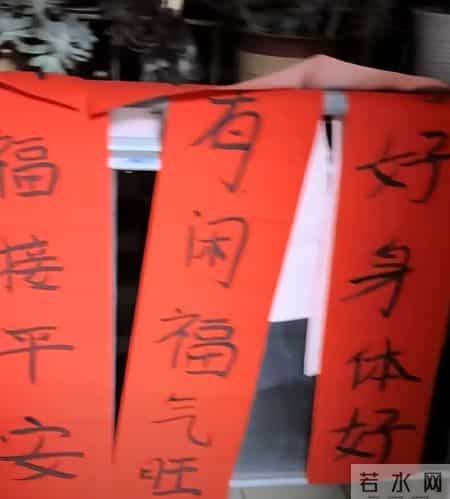 好身体好
有闲福气旺
福接平安
若水网